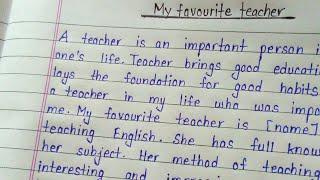 My favourite teacher
A teacher is an important person i
one's life. Teacher brings good educati
lays the foundation for good habits
a teacher in my life who was impo
me. My favourite teacher is [name]
teaching English. She has full know
her subject. Her method of teaching
interesting and impre